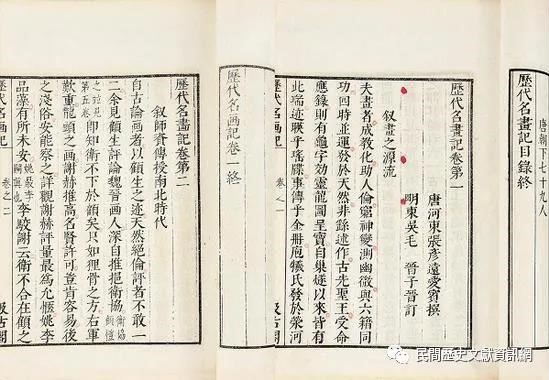 唐朝下七十九人
歷代名畫記目錄終
歷代名畫記卷第一
唐河東張彥遠愛賓撰
明東吳毛 晉子晉訂
叙畫之源流
夫畫者成教化助人倫窮神變測幽微與六籍同
功四時並運發於天然非繇述作古先聖王受命
應籙則有龜字効靈龍圖呈寶自巢燧以來皆有
此瑞迹暎乎瑤牒事傳乎金冊庖犧氏發於滎河
歷代名畫記 卷之一
歷代名画記卷一終
歷代名畫記卷第二
叙師資傳授南北時代
自古論画者以顧生之迹天然絕倫評者不敢一
二余見顧生評論魏晉画人深自推挹衛協衛協顧愷
之並見第五卷即知衛不下於顧矣只如狸骨之方右軍
歎重龍頭之画謝赫推高名賢許可豈肯容易後
之淺俗安能察之詳觀謝赫評量最為允愜姚李
品藻有所未安姚最李嗣真也李駿謝云衛不合在顧之
歷代名画記 卷之二 汲古閣
民間歷史文獻資訊網